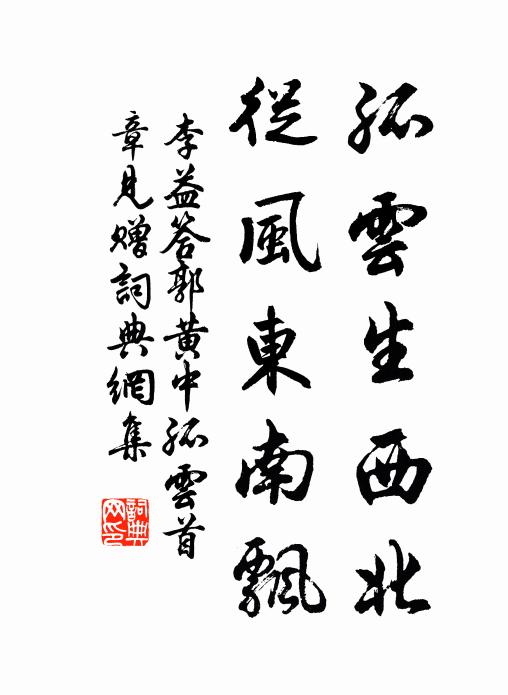 孤雲生西北
從風東南飄
李益答郭黃中孤雲首
章見贈詞典網集
詞典網印